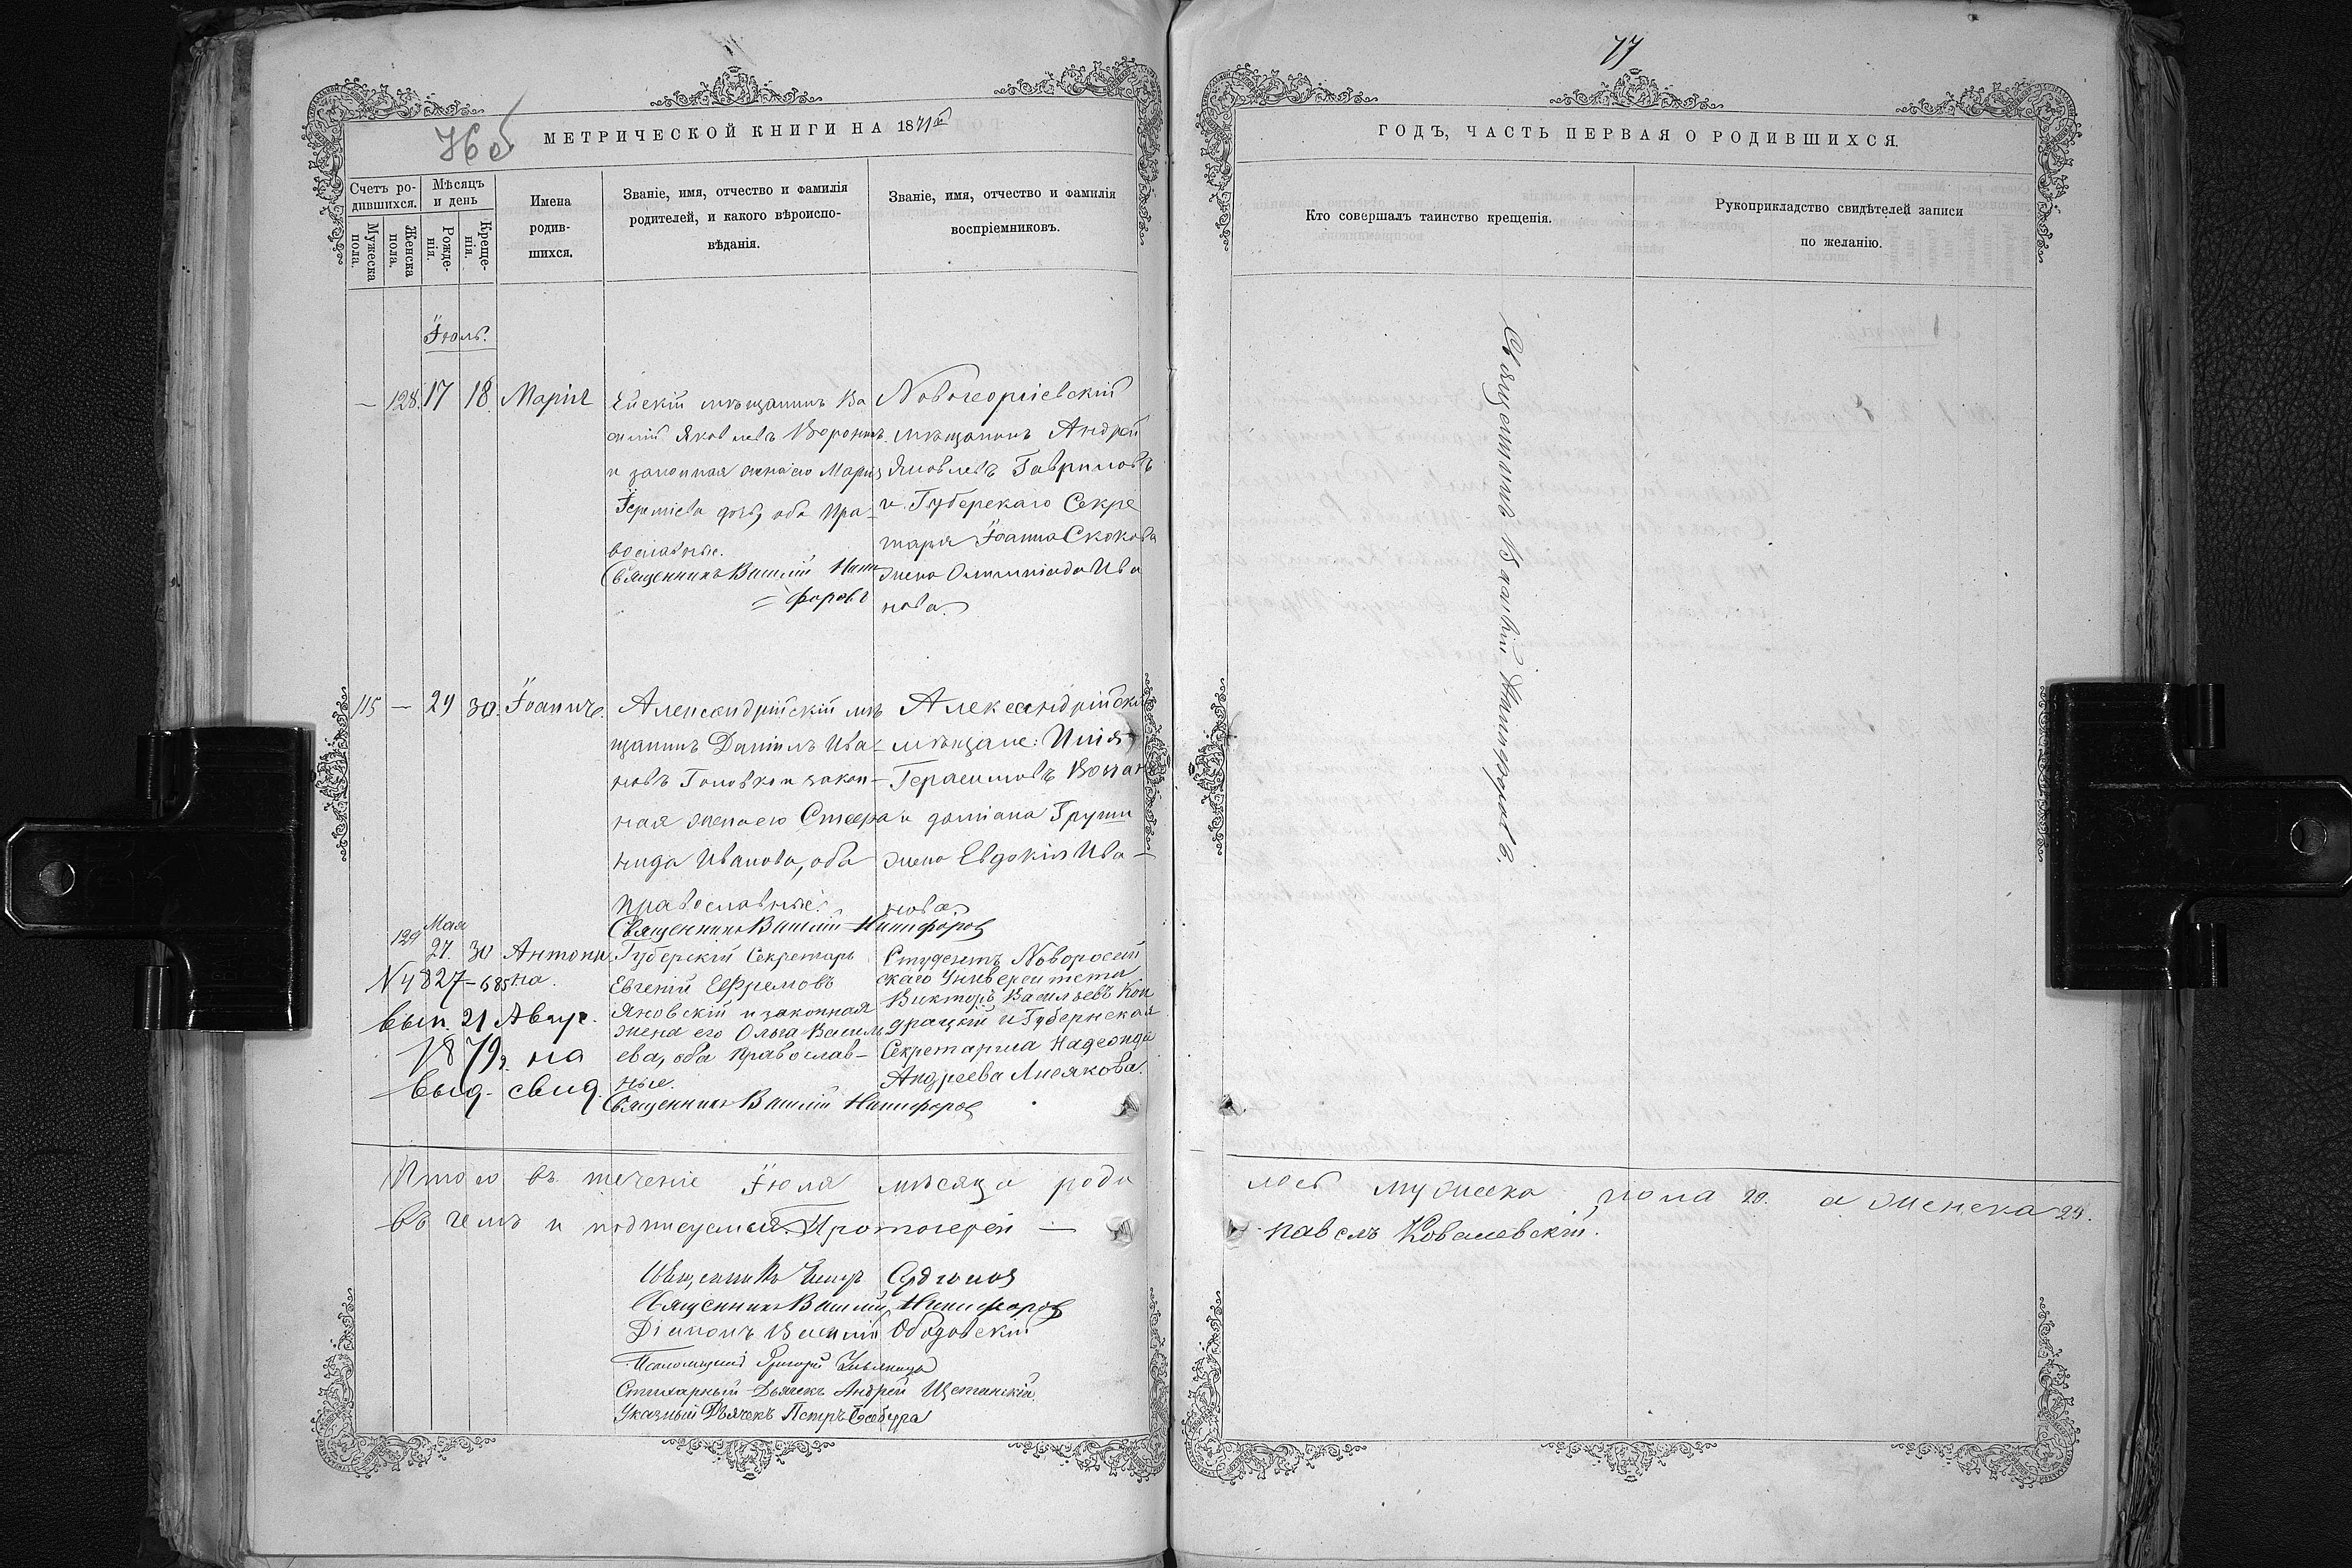 77
76 об
МЕТРИЧЕСКОЙ КНИГИ НА 1871й
ГОДЪ, ЧАСТЬ ПЕРВАЯ О РОДИВШИХСЯ.
Счетъ ро-
дившихся.
Мужеска
пола.
Женска
пола.
Мѣсяцъ
и день
Рожде-
нія.
Креще-
нія.
Имена
родив-
шихся.
Званіе, имя, отчество и фамилія
родителей, и какого вѣроиспо-
вѣданія.
Званіе, имя, отчество и фамилія
воспріемниковъ.
Кто совершалъ таинство крещенія.
Рукоприкладство свидѣтелей записи
по желанію.
Іюль.
— 128. 17 18. Марія
Ейскій мѣщанинъ Ва
силій Яковлевъ Воронинъ.
и законная жена его Марія
Іереміева дочь, оба Пра-
вославные.
Священникъ Василій Ники
= форовъ
Новогеоргіевскій
мѣщанинъ Андрей
Яковлевъ Гавриловъ
и Губерскаго Секре
таря Іоанна Скокова
жена Олимпіада Ива
нова
Священникъ Василій Никифоровъ.
115 — 29 30. Іоаннъ.
Александрійскій мѣ
щанинъ Даніилъ Ива-
новъ Головко и закон-
ная жена его Стефа
нида Иванова, оба
православные.
Священникъ Василій Никифоровъ
Александрійскіе
мѣщане: Илія
Герасимовъ
и даміана
жена Евдокія Ива-
нова
Мая
129 27. 30 Антони
на.
№ 4827-685
вып. 21 Авгус.
1879 г. на
выд. свид.
Губерскій Секретарь
Евгеній Ефремовъ
Яновскій и законная
жена его Ольга Василь
ева, оба православ-
ные.
Священникъ Василій Никифоровъ
Студентъ Новоросій
скаго Университета
Викторъ Васильевъ Кон
драцкій и Губернская
Секретарша Надежда
Андреева Лисякова.
Итого въ теченіе Іюля мѣсяца роди
лось мужеска пола 20. а женска 24.
въ чемъ и подписуемся. Протоіерей —
Павелъ Ковалевскій.
Священникъ
Священникъ Василій Никифоровъ
Діаконъ Василій Ободовскій
Псаломщикъ Григорій
Стихарный Дьячекъ Андрей
Указный Дьячекъ Петръ